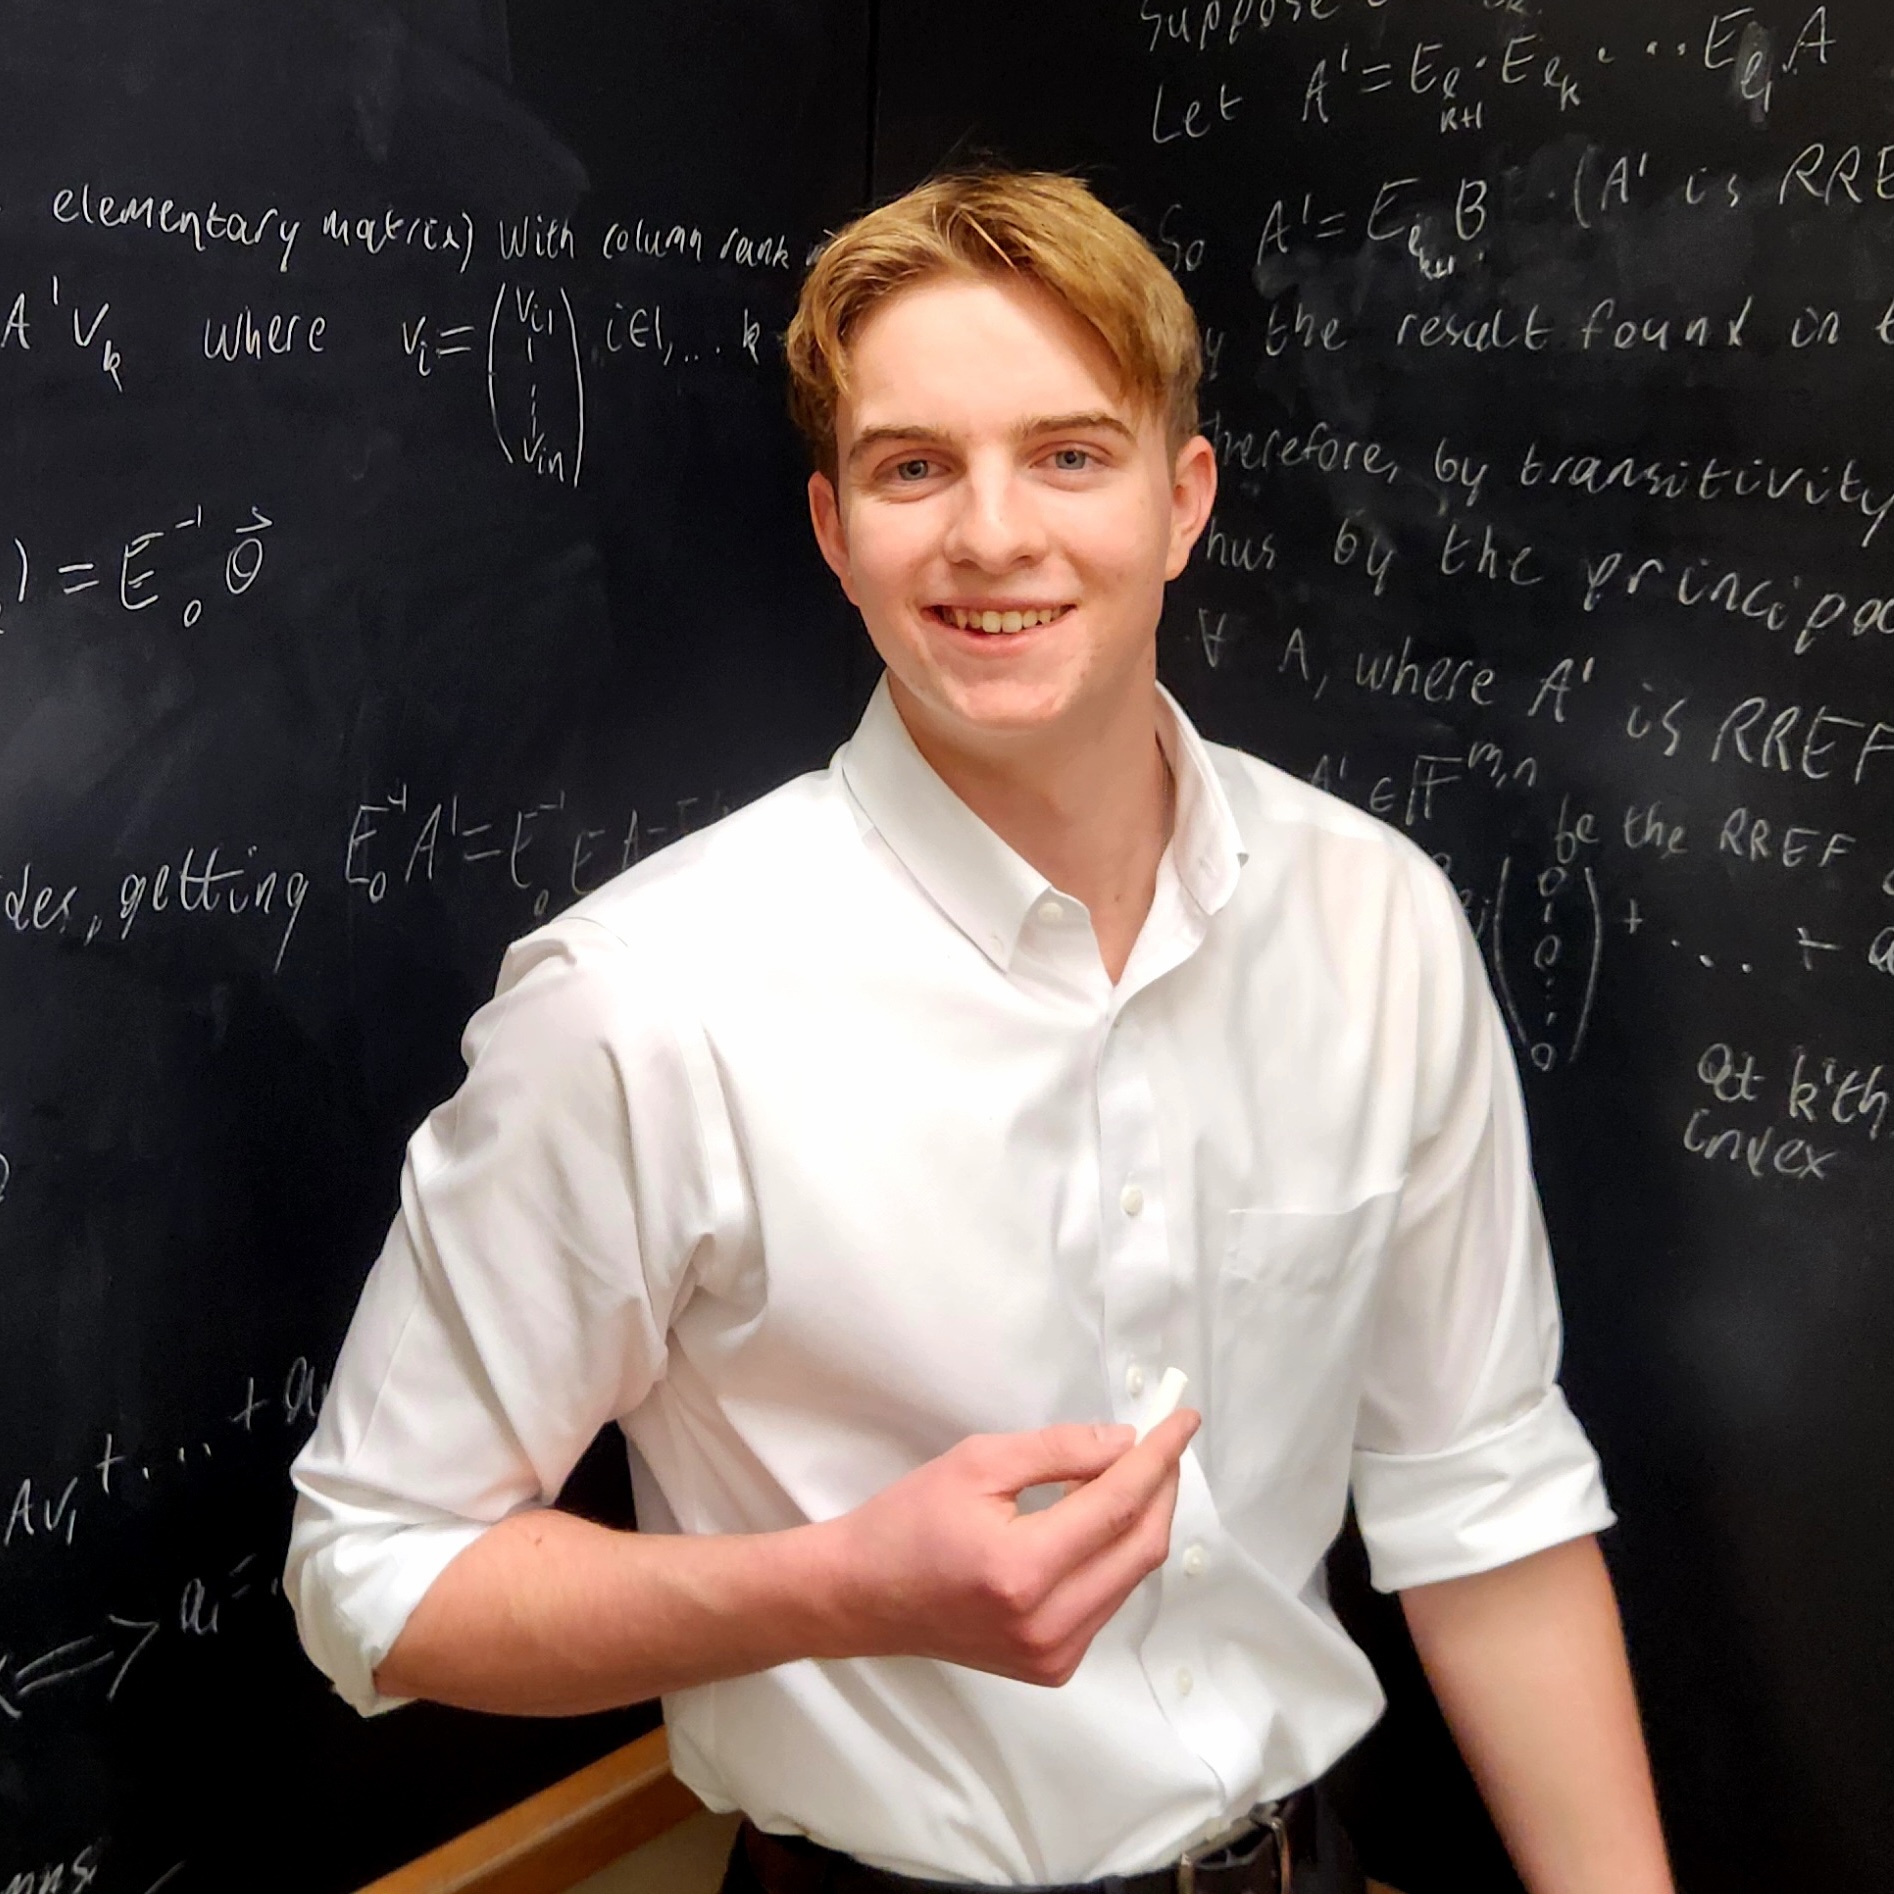 elementary matrix) with column rank
A'v_k where v_i = (v_i1 ⋮ v_in) i∈1,... k
) = E_0^-1 0⃗
des, getting E_0^-1 A' = E_0^-1 E A =
+ a
Av_1 + ...
⟷ a_i =
mns
Suppose
Let A' = E_e_k+1 · E_e_k · ... E_e_1 A
So A' = E_e_k+1 B (A' is RRE
y the result found in t
herefore, by transitivity
hus by the principa
∀ A, where A' is RREF
A' ∈ 𝔽^m,n
be the RREF
+ ... + a
at k'th
index